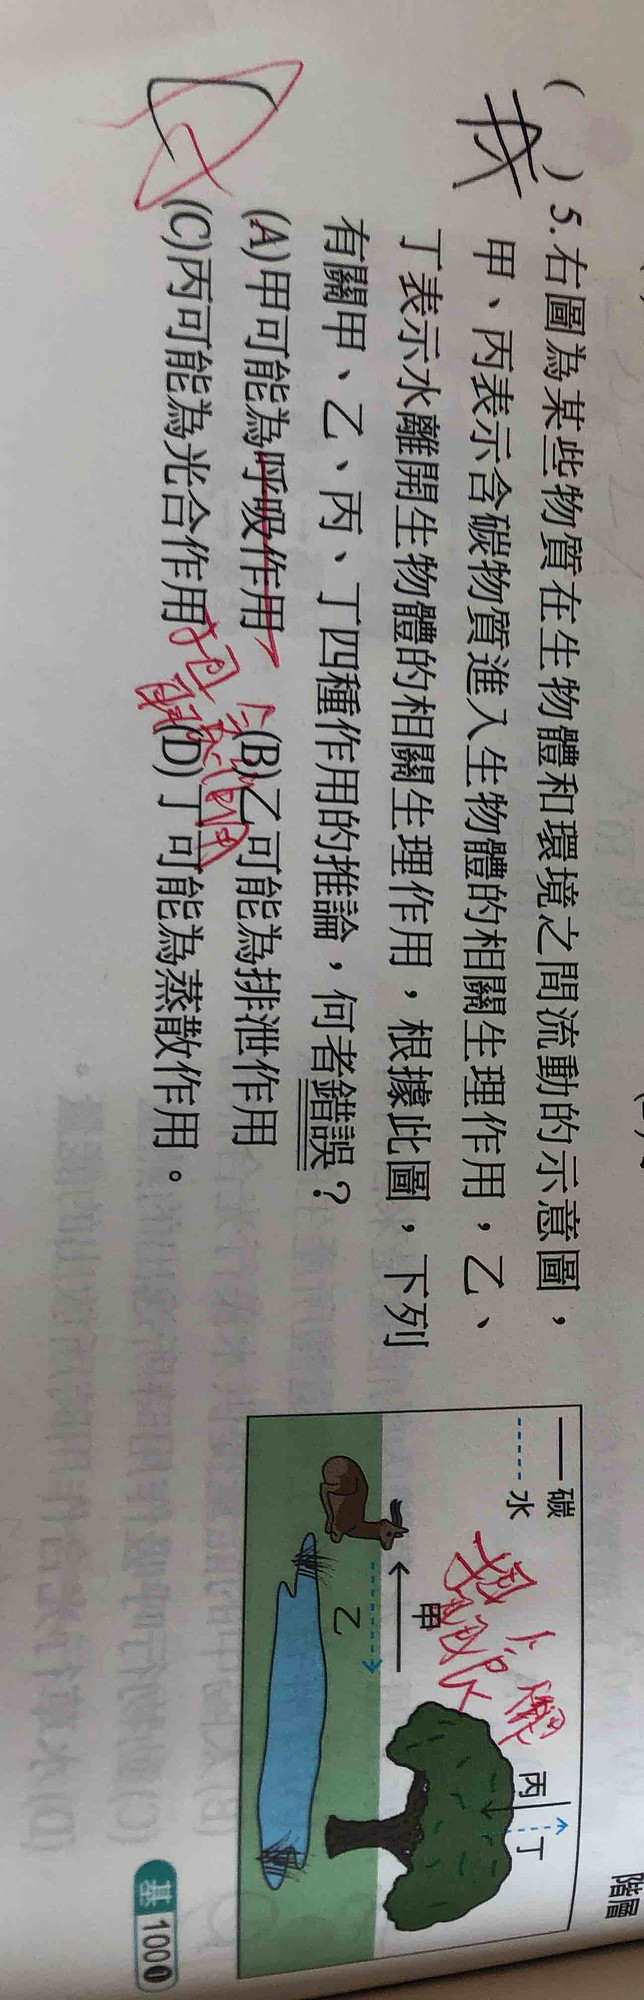 ( ) 5.右圖為某些物質在生物體和環境之間流動的示意圖，
甲、丙表示含碳物質進入生物體的相關生理作用，乙、
丁表示水離開生物體的相關生理作用，根據此圖，下列
有關甲、乙、丙、丁四種作用的推論，何者錯誤？
(A)甲可能為呼吸作用 (B)乙可能為排泄作用
(C)丙可能為光合作用 (D)丁可能為蒸散作用。
碳
水
甲
乙
丙
丁
階層
基 100